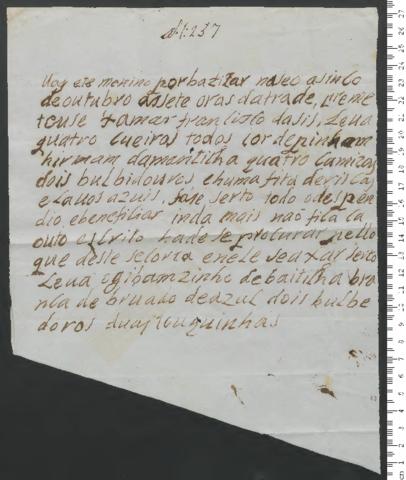 N. 1:237
Vay este menino por batizar naseo a sinco
de outubro as sete oras da trade, preme
teuse xamar francisco dasis, Leua
quatro cueiros todos cor de pinham
hu mam damantilha quatro camizas
dois bulbidouros e huma fita de riscas
e lauos azuis, fase serto todo o despen
dio e beneficiar inda mais naõ fica ca
outo escrito hade se procurar pello
que deste se loria e nele se a xar serto
Leua o gibamzinho de baitilha bra
nca de bruado de azul dois bulbe
doros duas touquinhas